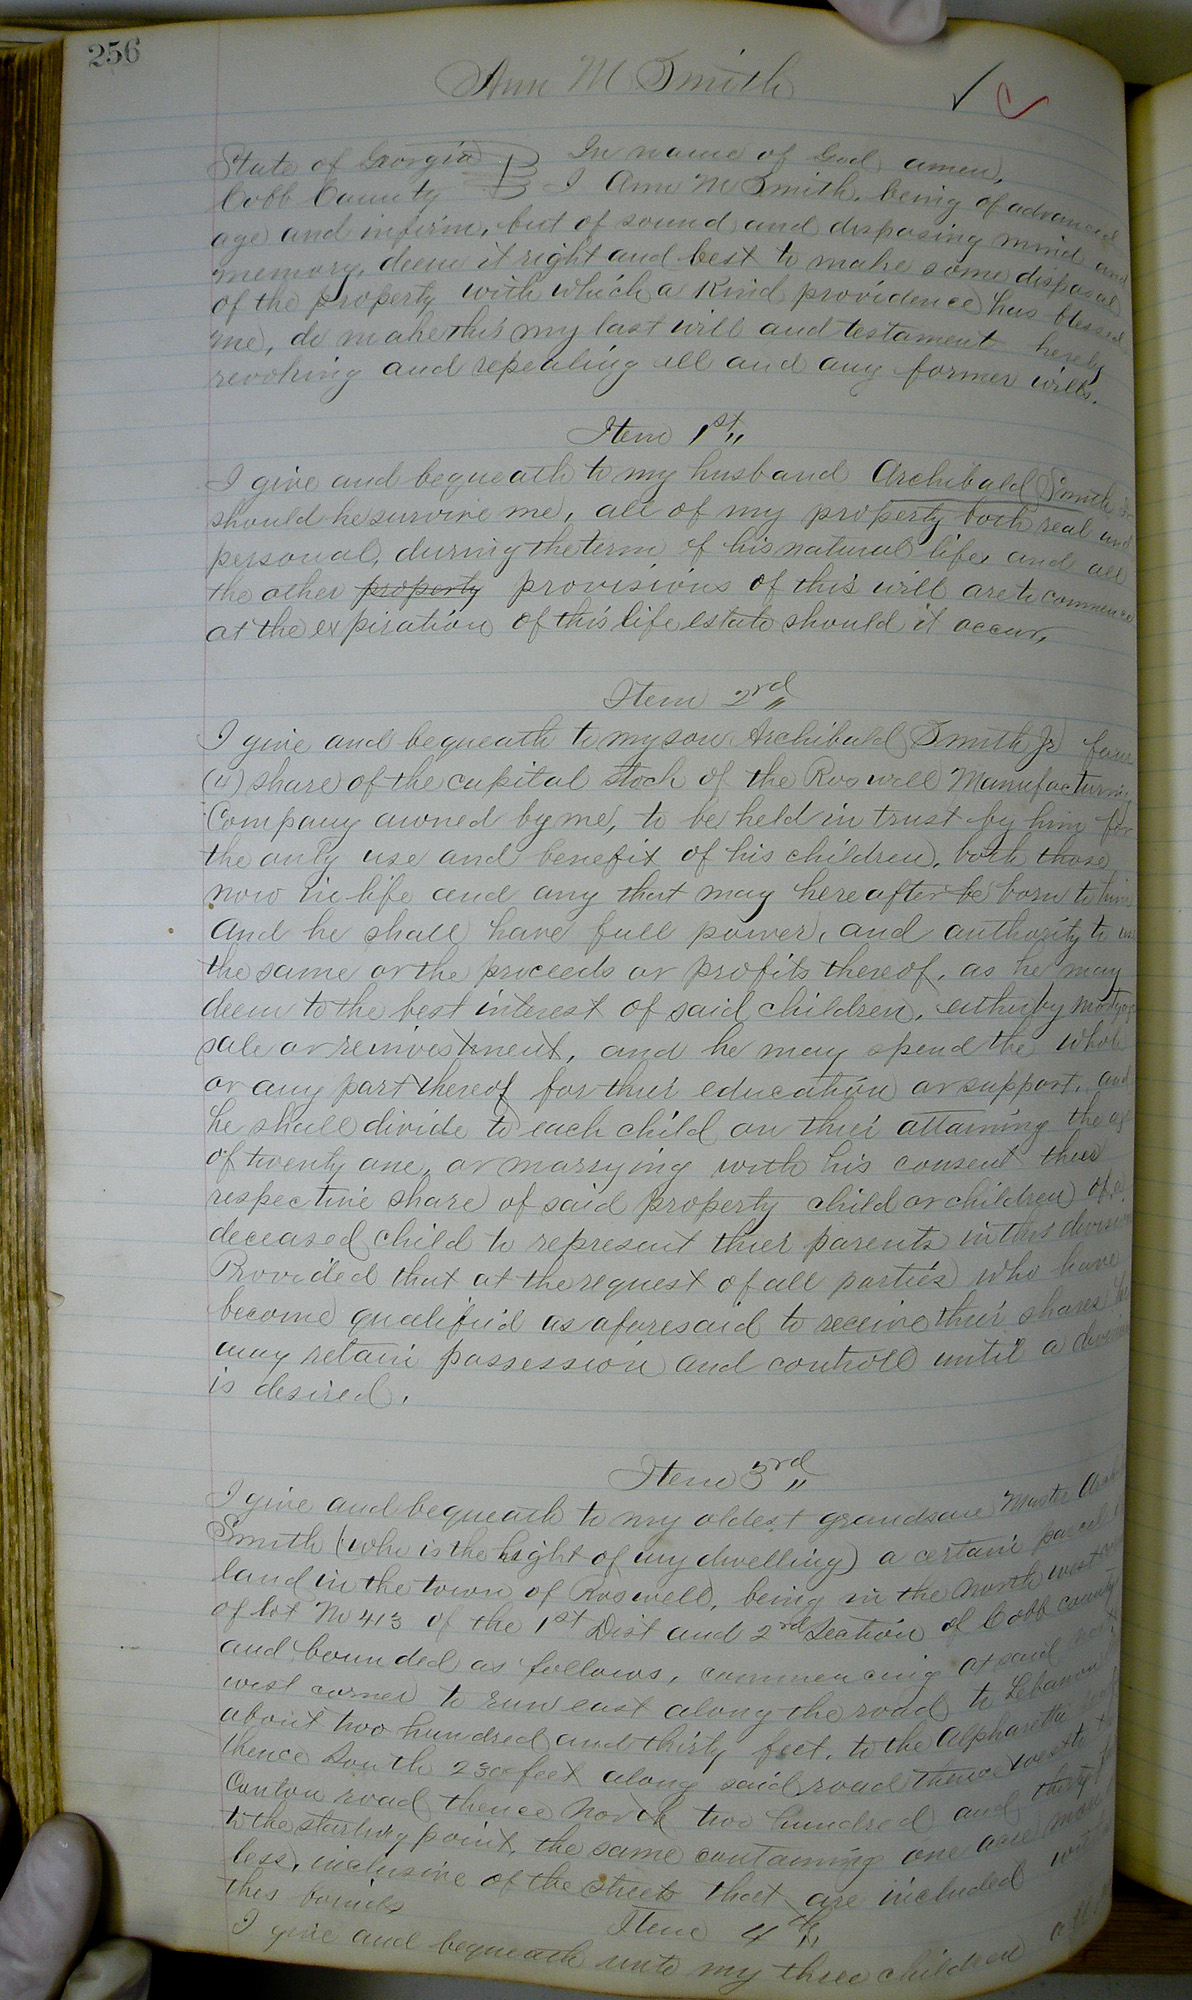 256
Ann M Smith
State of Georgia In name of God, amen,
Cobb County I Ann M Smith, being of advanced
age and infirm, but of sound and disposing mind and
memory, deem it right and best to make some disposal
of the property with which a Kind providence has blessed
me, do make this my last will and testament hereby
revoking and repealing all and any former wills.
Item 1st "
I give and bequeath to my husband Archibald Smith Sr
should he survive me, all of my property both real and
personal, during the term of his natural life, and all
the other property provisions of this will are to commence
at the expiration of this life estate should it occur,
Item 2rd "
I give and bequeath to my son Archibald Smith Jr four
(4) share of the capital stock of the Roswell Manufacturing
Company owned by me, to be held in trust by him for
the only use and benefit of his children, both those
now in life and any that may hereafter be born to him
And he shall have full power, and authority to use
the same or the proceeds or profits thereof, as he may
deem to the best interest of said children, either by mortgage
sale or reinvestment, and he may spend the whole
or any part thereof for thier education or support, and
he shall divide to each child on thier attaining the age
of twenty one, or marrying with his consent thier
respective share of said property child or children of a
deceased child to represent thier parents in this division
Provided that at the request of all parties who have
become qualified as aforesaid to receive thier shares he
may retain possession and controll until a division
is desired.
Item 3rd "
I give and bequeath to my oldest grandson Master
Smith (who is the light of my dwelling) a certain parcel
land in the town of Roswell, being in the North west
of lot No 413 of the 1st Dist and 2rd Section of Cobb county
and bounded as follows, commencing at said
west corner to run east along the road to Lebanon
about two hundred and thirty feet, to the Alpharetta
thence South 230 feet along said road thence west to
Canton road thence North two hundred and thirty
to the starting point, the same containing one acre more
less, inclusive of the streets that are included
this bounds
Item 4th "
I give and bequeath unto my three children